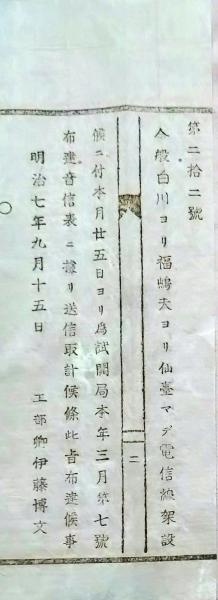 第二拾二號
今般白川ヨリ福嶋夫ヨリ仙臺マデ電信線架設
二
候ニ付本月廿五日ヨリ為試開局本年三月第七號
布達音信表ニ據リ送信取計候條此旨布達候事
明治七年九月十五日 工部卿伊藤博文
○